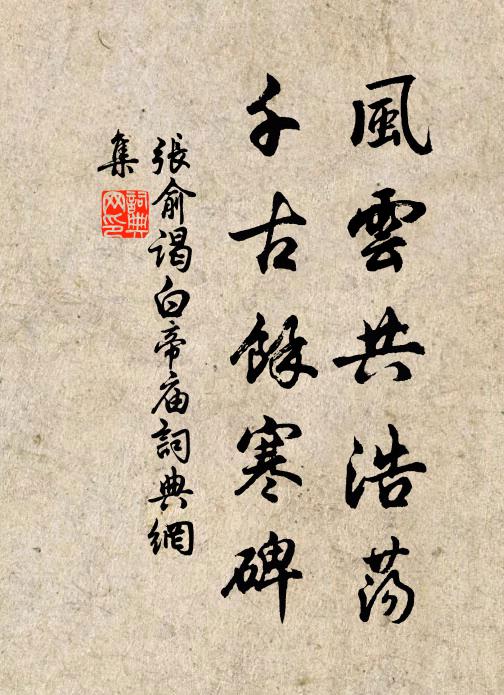 風雲共浩蕩
千古餘寒碑
張俞谒白帝庙詞典網
集
詞典
网印